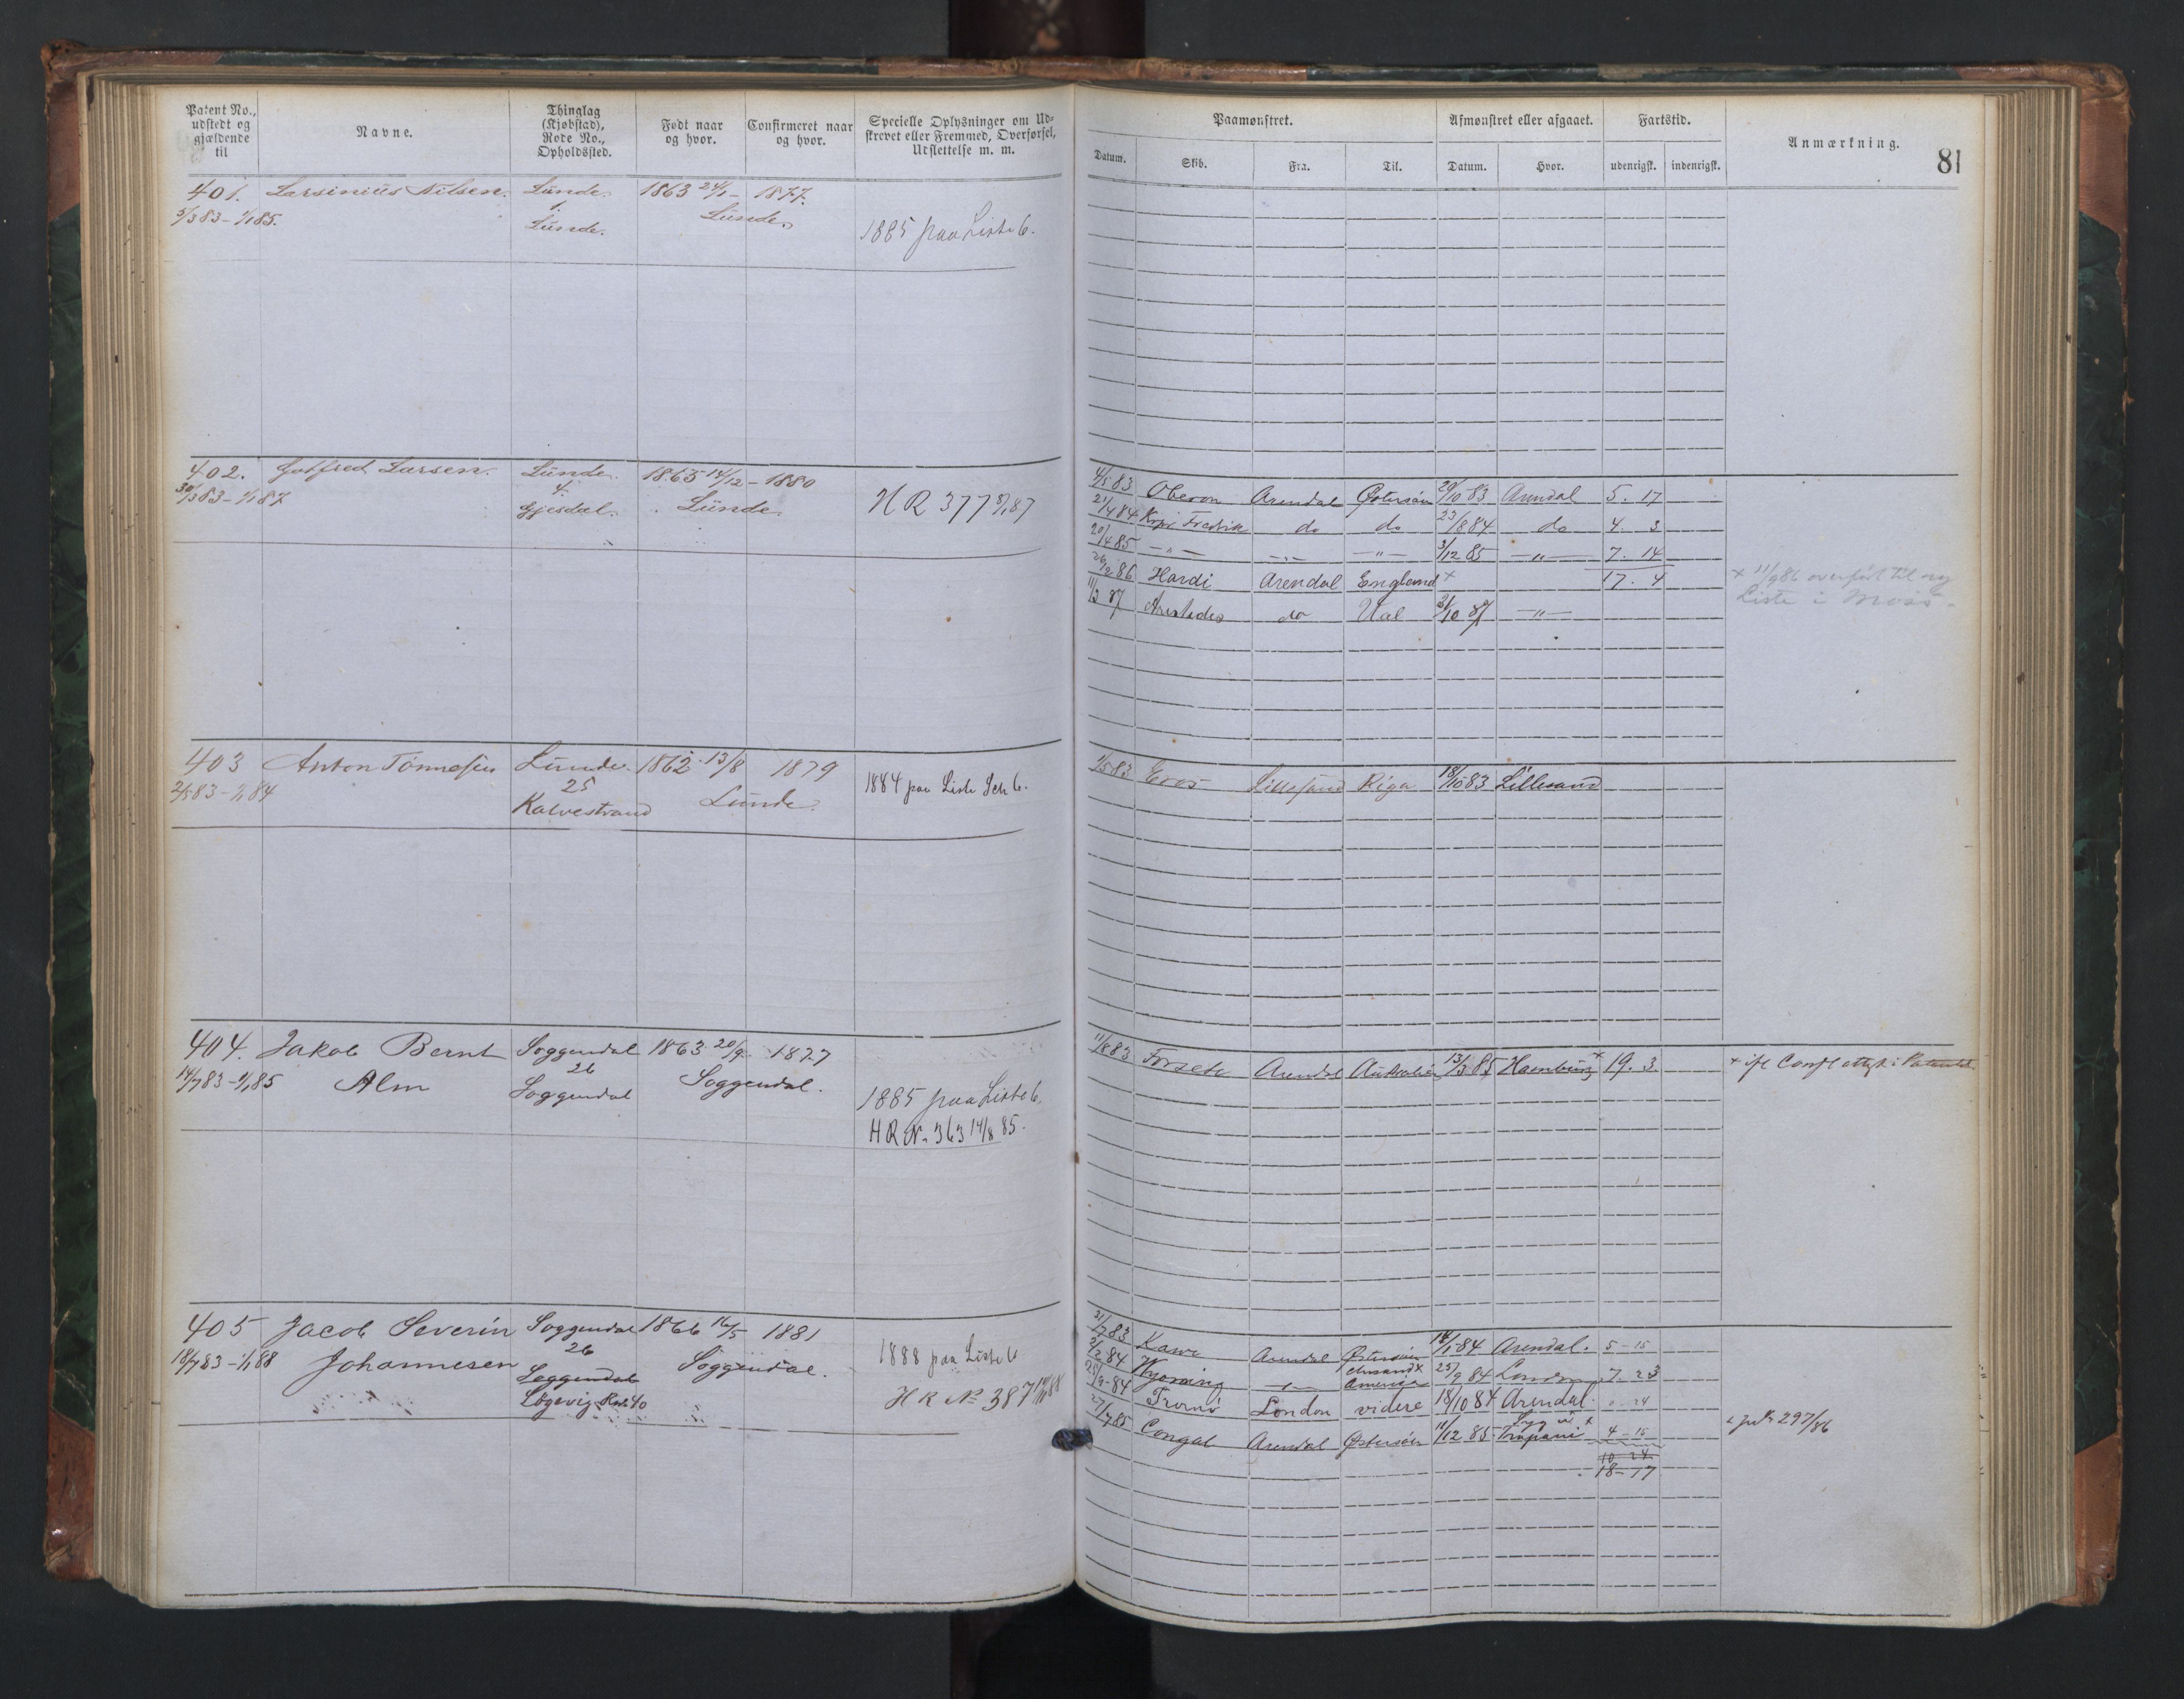 Patent No., udstedt og gjældende til
Navne.
Thinglag (Kjøbstad), Rode No., Opholdssted.
Født naar og hvor.
Confirmeret naar og hvor.
Specielle Oplysninger om Udskrevet eller Fremmed, Overførsel, Udslettelse m. m.
Paamønstret.
Afmønstret eller afgaaet.
Fartstid.
Anmærkning.
81
Datum.
Skib.
Fra.
Til.
Datum.
Hvor.
udenrigsk.
indenrigsk.
401. Larsinius Nilsen. Lunde. 1863 24/1 - 1877.
5/3 83 - 1/1 85. 1. Lunde.
Lunde.
1885 paa Liste 6.
402. Gotfred Larsen. Lunde. 1865 14/12 - 1880
30/3 83 - 1/1 87 4. Lunde.
Gjesdal.
H R 377 3/1 87
4/5 83 Oberon Arendal Østersøen 20/10 83 Arendal 5. 17
21/4 84 Fredrik do do 23/8 84 do 4. 3
20/4 85 - " - - " - - " - 3/12 85 - " - 7. 14
26/2 86 Hardi Arendal England + 17. 4
+ 11/9 86 overført til ny
Liste i Moss -
11/3 87 do 31/10 87 - " -
403 Anton Tönnesen Lunde. 1862 13/8 1879
2/5 83 - 1/1 84 25 Lunde.
Kalvestrand
1884 paa Liste 6.
1/5 83 Eros Lillesand Riga 18/10 83 Lillesand
404. Jakob Bernt Soggendal 1863 20/9 - 1877
14/7 83 - 1/1 85 Alm 26 Soggendal.
Soggendal
1885 paa Liste 6.
H R No 363 14/8 85.
11/8 83 Forsete Arendal Australien 13/3 85 Hamburg + 19. 3
405 Jacob Severin Soggendal 1866 16/5 1881
18/7 83 - 1/1 88 Johannesen 26 Soggendal.
Soggendal
Løgevig Rno 40
1888 paa Liste 6
H R No 387
31/7 83 Arendal Østersøen 14/1 84 Arendal. 5 - 15
2/2 84 Wyoming - " - America 25/9 84 London 7. 23
25/9 84 Tromö London videre 18/10 84 Arendal. - 24
27/7 85 Congal Arendal Østersøen 11/12 85 4 - 15
10 24
18 - 17
297/86